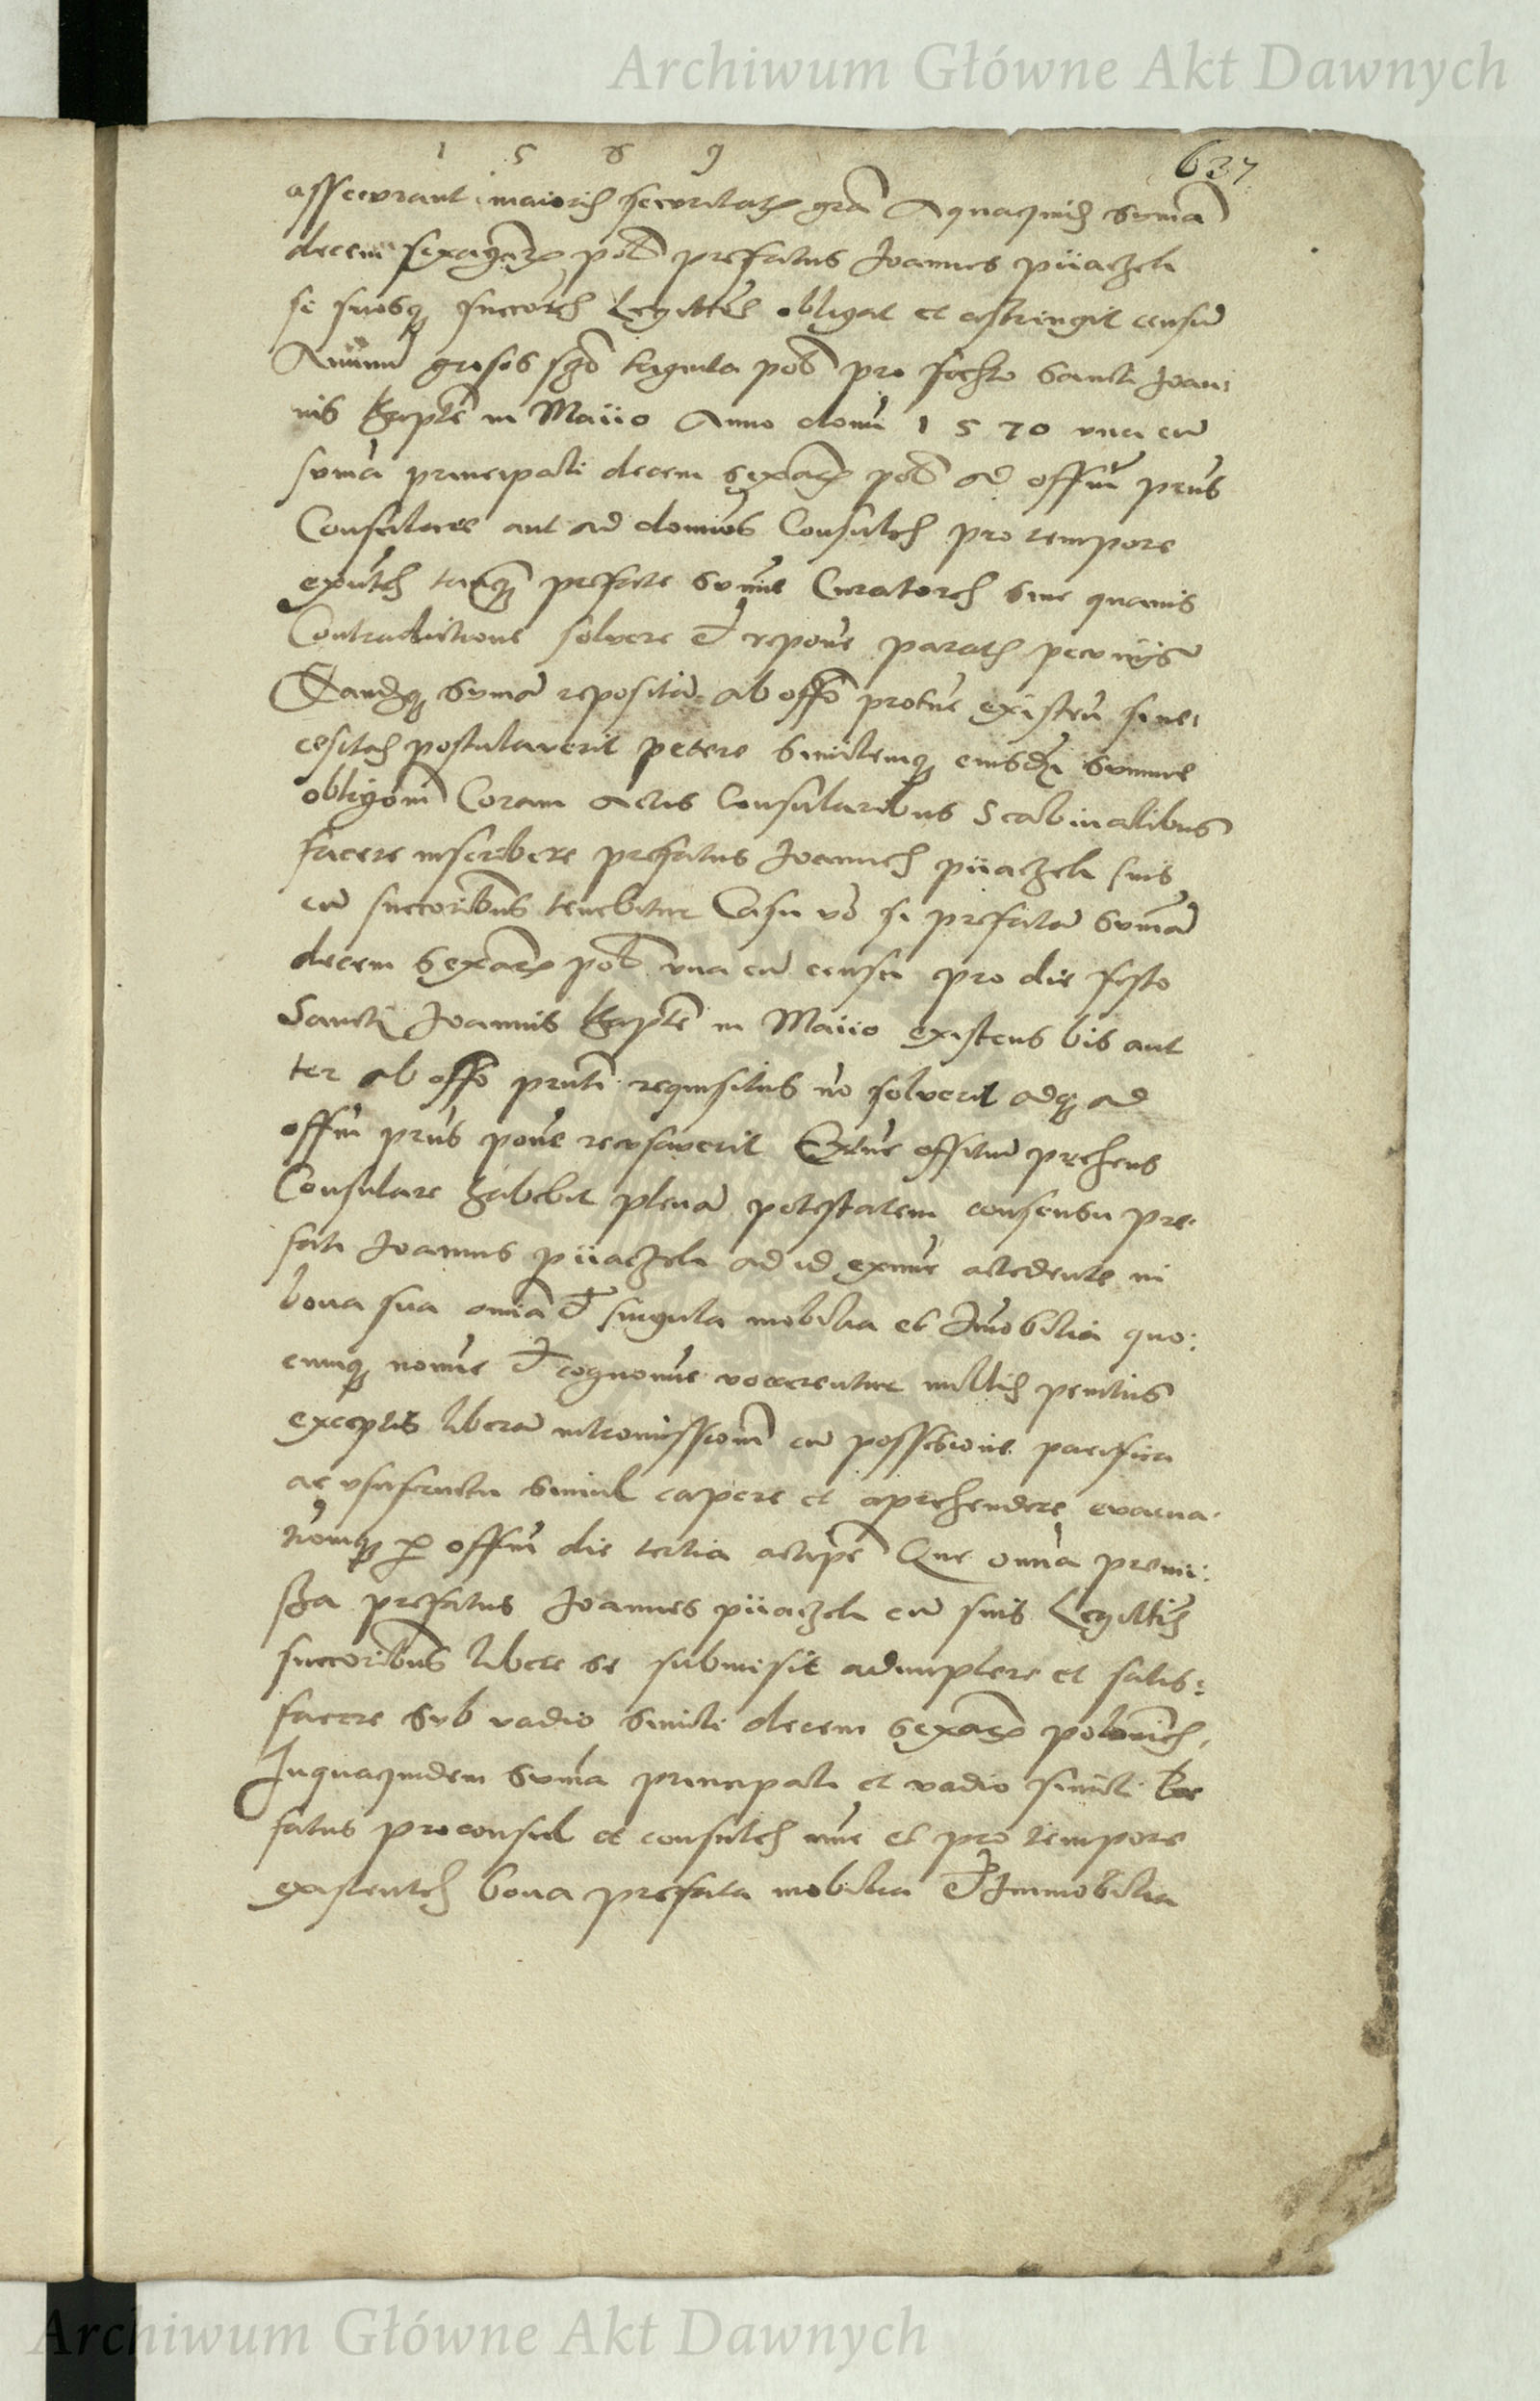 Archiwum Główne Akt Dawnych
1 5 6 9
637
assecurant maioris securitatis gra Aquaquid suma
decem sexagenis pol prefatus Joannes püaczek
se suosq succores Legittios obligat et astringit censu
Anuum grosos triginta pol pro festo Sancti Joan:
nis Bapte in Maiio Anno domi 1 5 70 vna cu
suma principali decem sexagis pol ad offm pns
Consulare aut ad dominos Consules pro tempore
exntes tanq prefate sume Curatores sine quauis
Contradictione solvere et repone paratis pecuniis
Eandeq suma reposita ab offo existen si ne:
cesitas postulaverit petere similemq eiusde summe
obligom Coram actis Consularibus Scabinalibus
facere inscribere prefatus Joannes püaczek suis
cu succoribus tenebitur Casu vo si prefata suma
decem sexagis pol vna cu censu pro die festo
Sancti Joannis Bapte in Maiio existens bis aut
ter ab offo pnti requisitus no solverit adq ad
offm pns pone recusaverit Extuc offitiu prehens
Consulare habebit plena potestatem consensu pre:
fati Joannis püaczek ad id exnuc accedente in
bona sua omia et singula mobilia et Imobilia quo:
cumq nomie et cognomie vocerentur nullis penitus
exceptis libera intromissione cu possesione pacifica
ac vsufructu simul capere et aprehendere evacua:
tionemq p offm die tertia accipe Que omia premi:
ssa prefatus Joannes püaczek cu suis Legittis
succoribus libere se submisit adimplere et satis:
facere sub vadio simili decem sexagis polonich
Inquaquidem suma principali et vadio simili
fatus proconsul et consules nuc et pro tempore
existentes bona prefata mobilia et Immobilia
Archiwum Główne Akt Dawnych